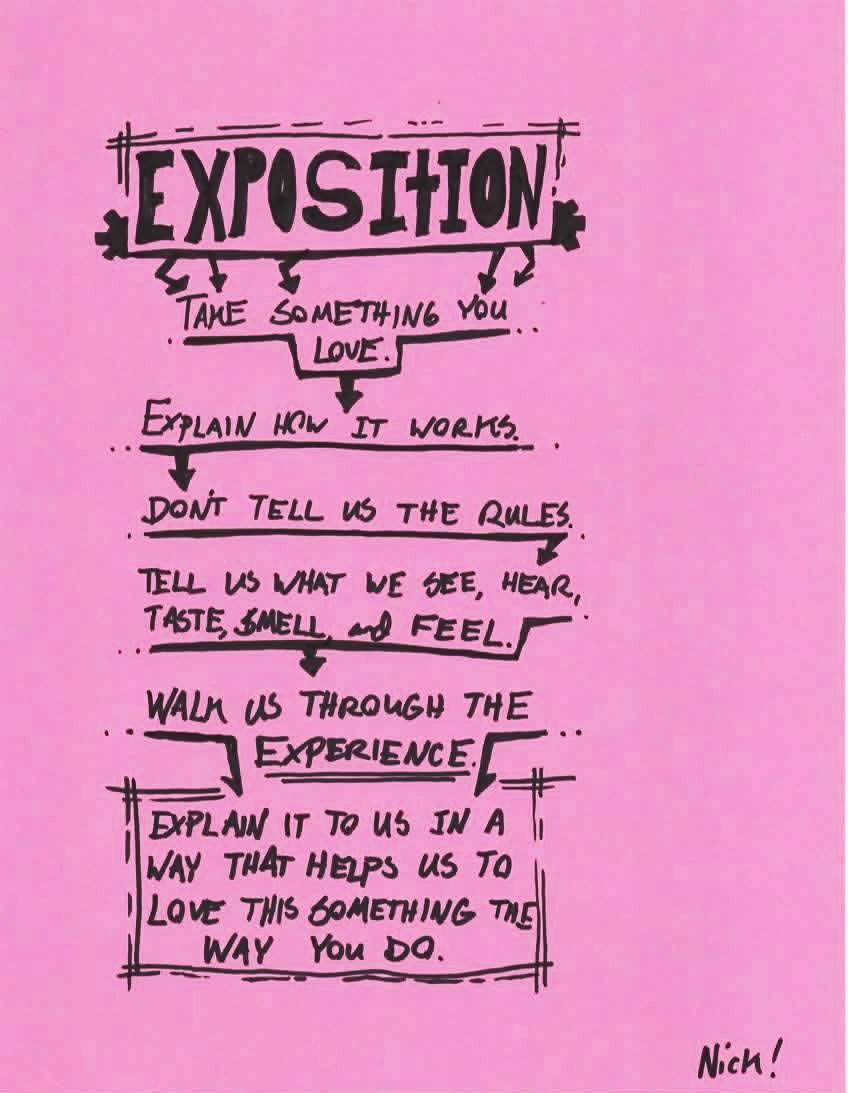 EXPOSITION
TAKE SOMETHING YOU
LOVE.
EXPLAIN HOW IT WORKS.
DON'T TELL US THE RULES.
TELL US WHAT WE SEE, HEAR,
TASTE, SMELL, and FEEL.
WALK US THROUGH THE
EXPERIENCE.
EXPLAIN IT TO US IN A
WAY THAT HELPS US TO
LOVE THIS SOMETHING THE
WAY YOU DO.
Nick!